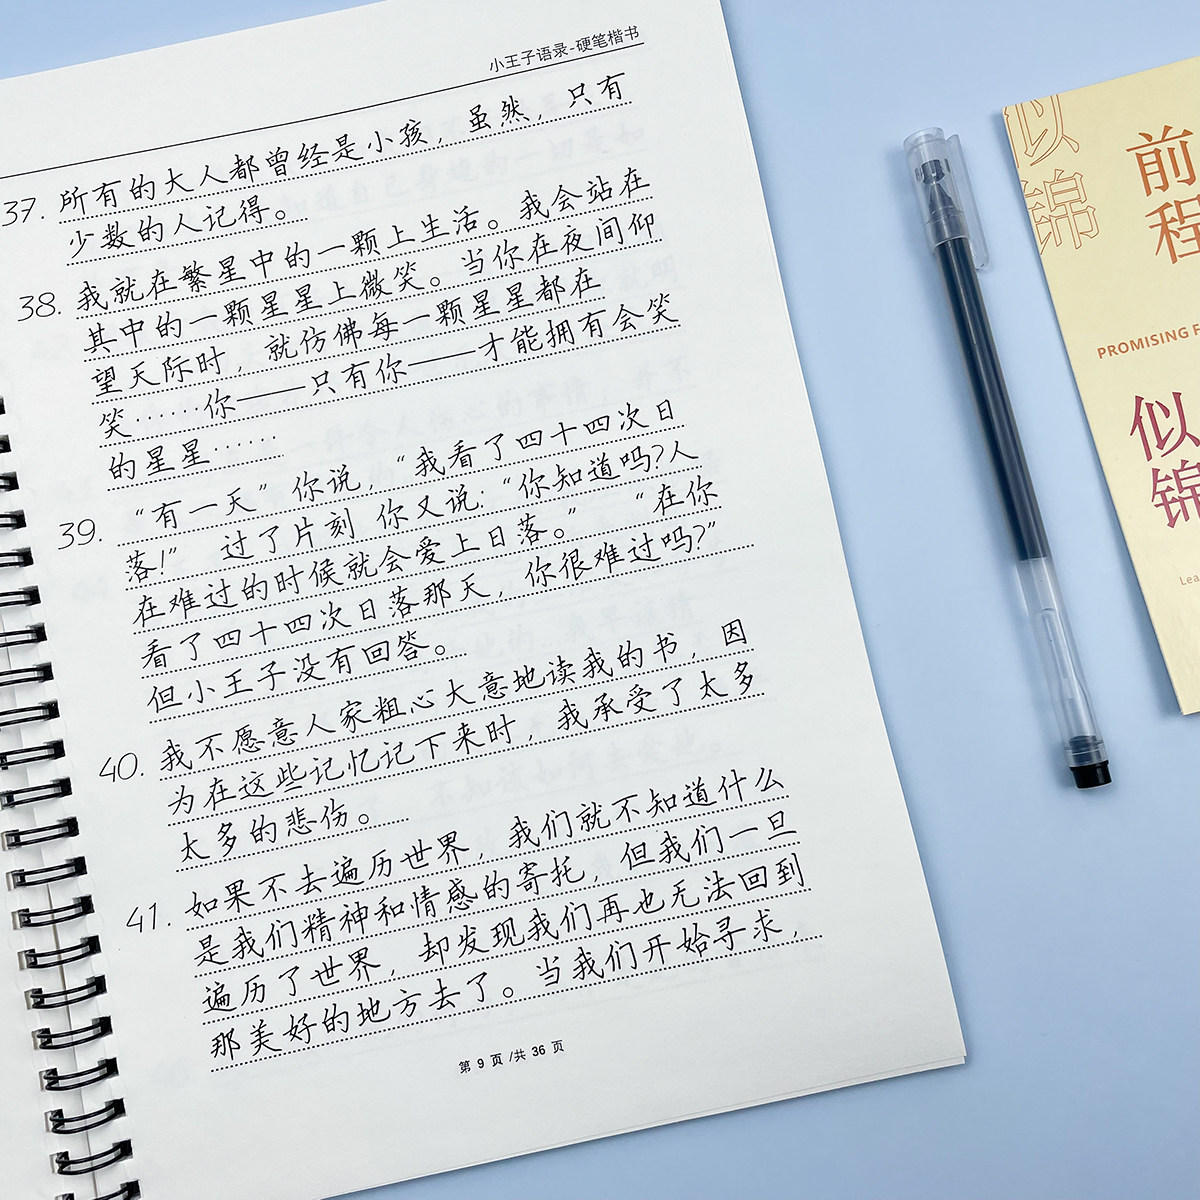 小王子语录-硬笔楷书
37. 所有的大人都曾经是小孩，虽然，只有
少数的人记得。
38. 我就在繁星中的一颗上生活。我会站在
其中的一颗星星上微笑。当你在夜间仰
望天际时，就仿佛每一颗星星都在
笑……你——只有你——才能拥有会笑
的星星……
39. “有一天”你说，“我看了四十四次日
落！” 过了片刻 你又说：“你知道吗？人
在难过的时候就会爱上日落。” “在你
看了四十四次日落那天，你很难过吗？”
但小王子没有回答。
40. 我不愿意人家粗心大意地读我的书，因
为在这些记忆记下来时，我承受了太多
太多的悲伤。
41. 如果不去遍历世界，我们就不知道什么
是我们精神和情感的寄托，但我们一旦
遍历了世界，却发现我们再也无法回到
那美好的地方去了。当我们开始寻求，
第 9 页 /共 36 页
似
锦
前
程
PROMISING F
似
锦
Lea